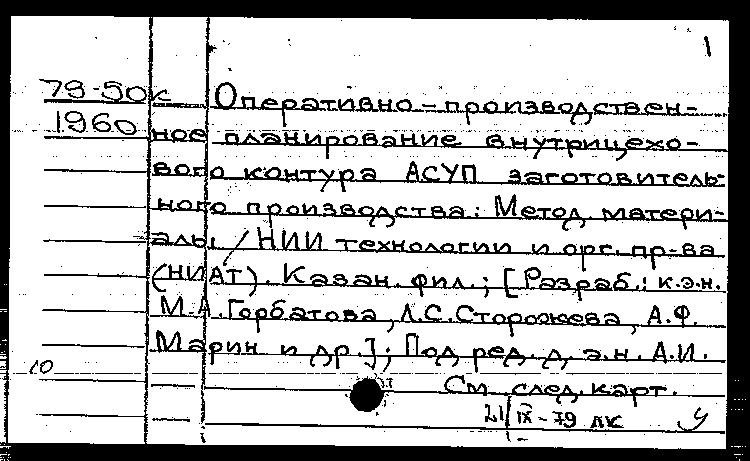 1
79-50к Оперативно-производствен-
1960 ное планирование внутрицехо-
вого контура АСУП заготовитель-
ного производства: Метод. матери-
алы / НИИ технологии и орг. пр-ва
(НИАТ). Казан. фил.; [Разраб.: к.э.н.
М.А. Горбатова, Л.С. Сторожева, А.Ф.
Марин и др.]; Под ред. д.э.н. А.И.
10
См. след. карт.
21/IX-79 лк